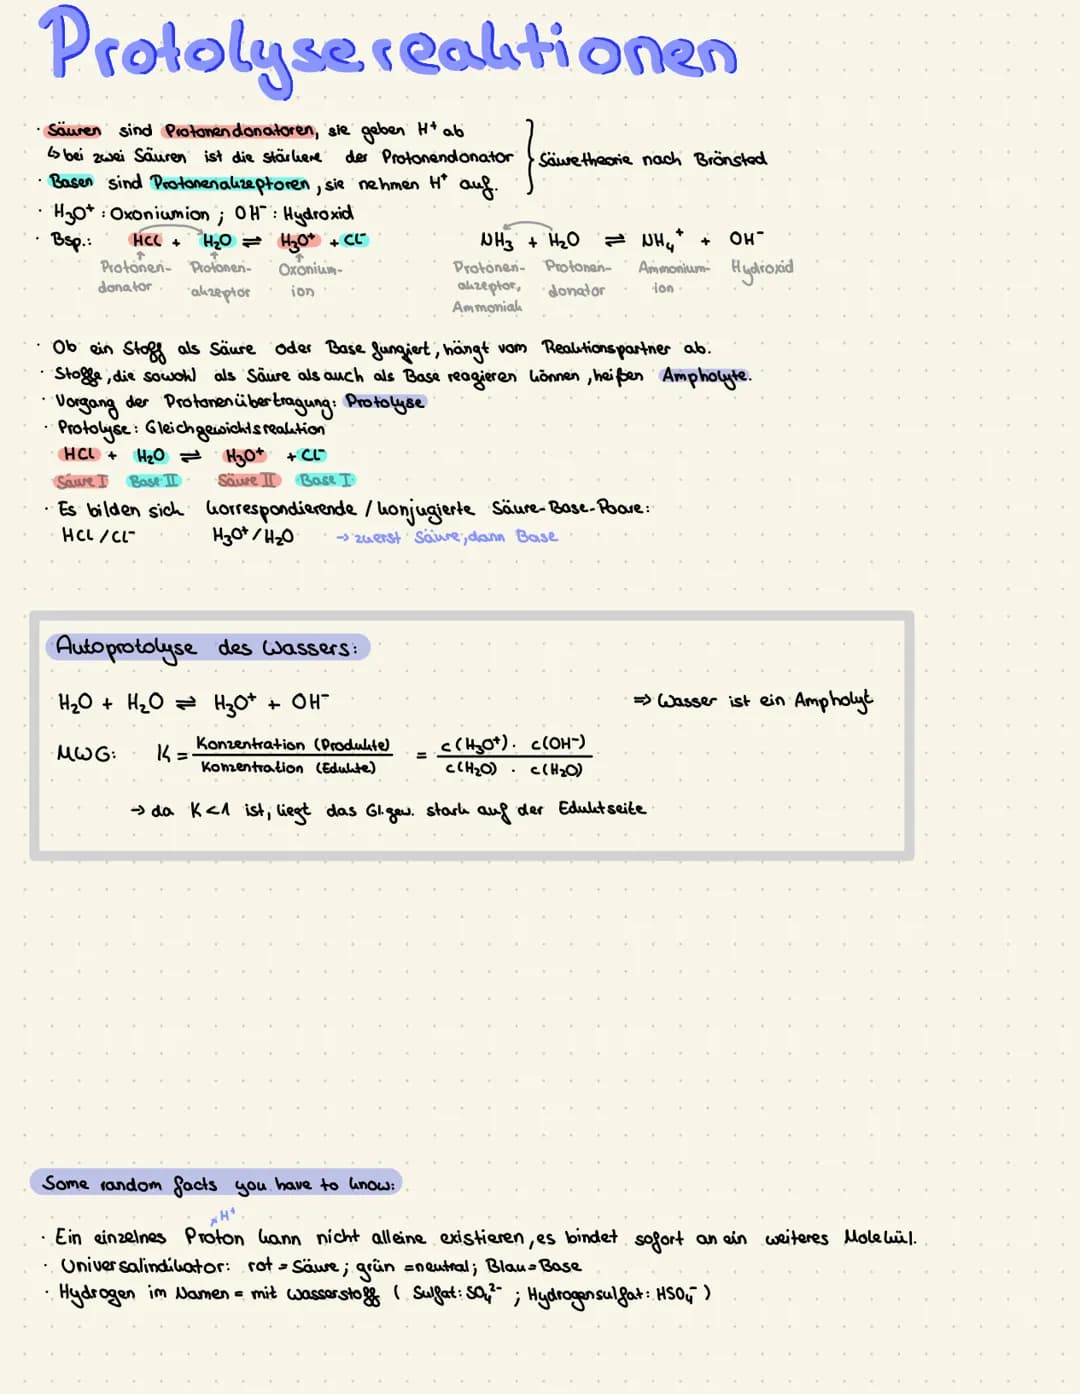 Protolysereaktionen
· Säuren sind Protonendonatoren, sie geben H⁺ ab
↳ bei zwei Säuren ist die stärkere der Protonendonator
Säuretheorie nach Brönsted
· Basen sind Protonenakzeptoren, sie nehmen H⁺ auf.
· H₃O⁺ : Oxoniumion ; OH⁻ : Hydroxid
· Bsp.: HCl + H₂O ⇌ H₃O⁺ + Cl⁻ NH₃ + H₂O ⇌ NH₄⁺ + OH⁻
Protonen- Protonen- Oxonium- Protonen- Protonen- Ammonium- Hydroxid
donator akzeptor ion akzeptor, donator ion
Ammoniak
· Ob ein Stoff als Säure oder Base fungiert, hängt vom Reaktionspartner ab.
· Stoffe, die sowohl als Säure als auch als Base reagieren können, heißen Ampholyte.
· Vorgang der Protonenübertragung: Protolyse
· Protolyse: Gleichgewichtsreaktion
HCl + H₂O ⇌ H₃O⁺ + Cl⁻
Säure I Base II Säure II Base I
· Es bilden sich korrespondierende / konjugierte Säure-Base-Paare:
HCl / Cl⁻ H₃O⁺ / H₂O → zuerst Säure, dann Base
Autoprotolyse des Wassers:
H₂O + H₂O ⇌ H₃O⁺ + OH⁻ ⇒ Wasser ist ein Ampholyt
MWG: K = Konzentration (Produkte) / Konzentration (Edukte) = c(H₃O⁺) · c(OH⁻) / c(H₂O) · c(H₂O)
→ da K<1 ist, liegt das Gl.gew. stark auf der Eduktseite
Some random facts you have to know:
H⁺
· Ein einzelnes Proton kann nicht alleine existieren, es bindet sofort an ein weiteres Molekül.
· Universalindikator: rot = Säure; grün = neutral; Blau = Base
· Hydrogen im Namen = mit Wasserstoff ( Sulfat: SO₄²⁻ ; Hydrogensulfat: HSO₄⁻ )